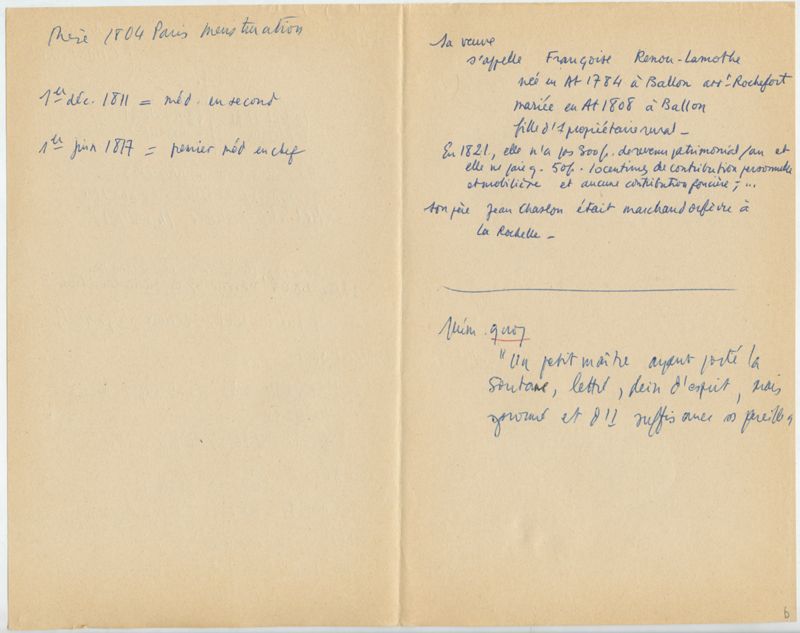 Thèse 1804 Paris Menstruation
1er déc. 1811 = méd. en second
1er juin 1817 = premier méd en chef
Sa veuve
s'appelle Françoise Renou-Lamothe
née en At 1784 à Ballon arrt Rochefort
mariée en At 1808 à Ballon
fille d'1 propriétaire rural -
En 1821, elle n'a pas 300f. de revenu patrimonial/an et
elle ne paie q. 50f. 10 centimes de contribution personnelle
et mobilière et aucune contribution foncière ; ...
Son père Jean Chaslon était marchand orfèvre à
La Rochelle -
Mém. Quoy
"Un petit maître ayant porté la
Soutane, lettré, plein d'esprit, mais
et d'1 suffisance
6